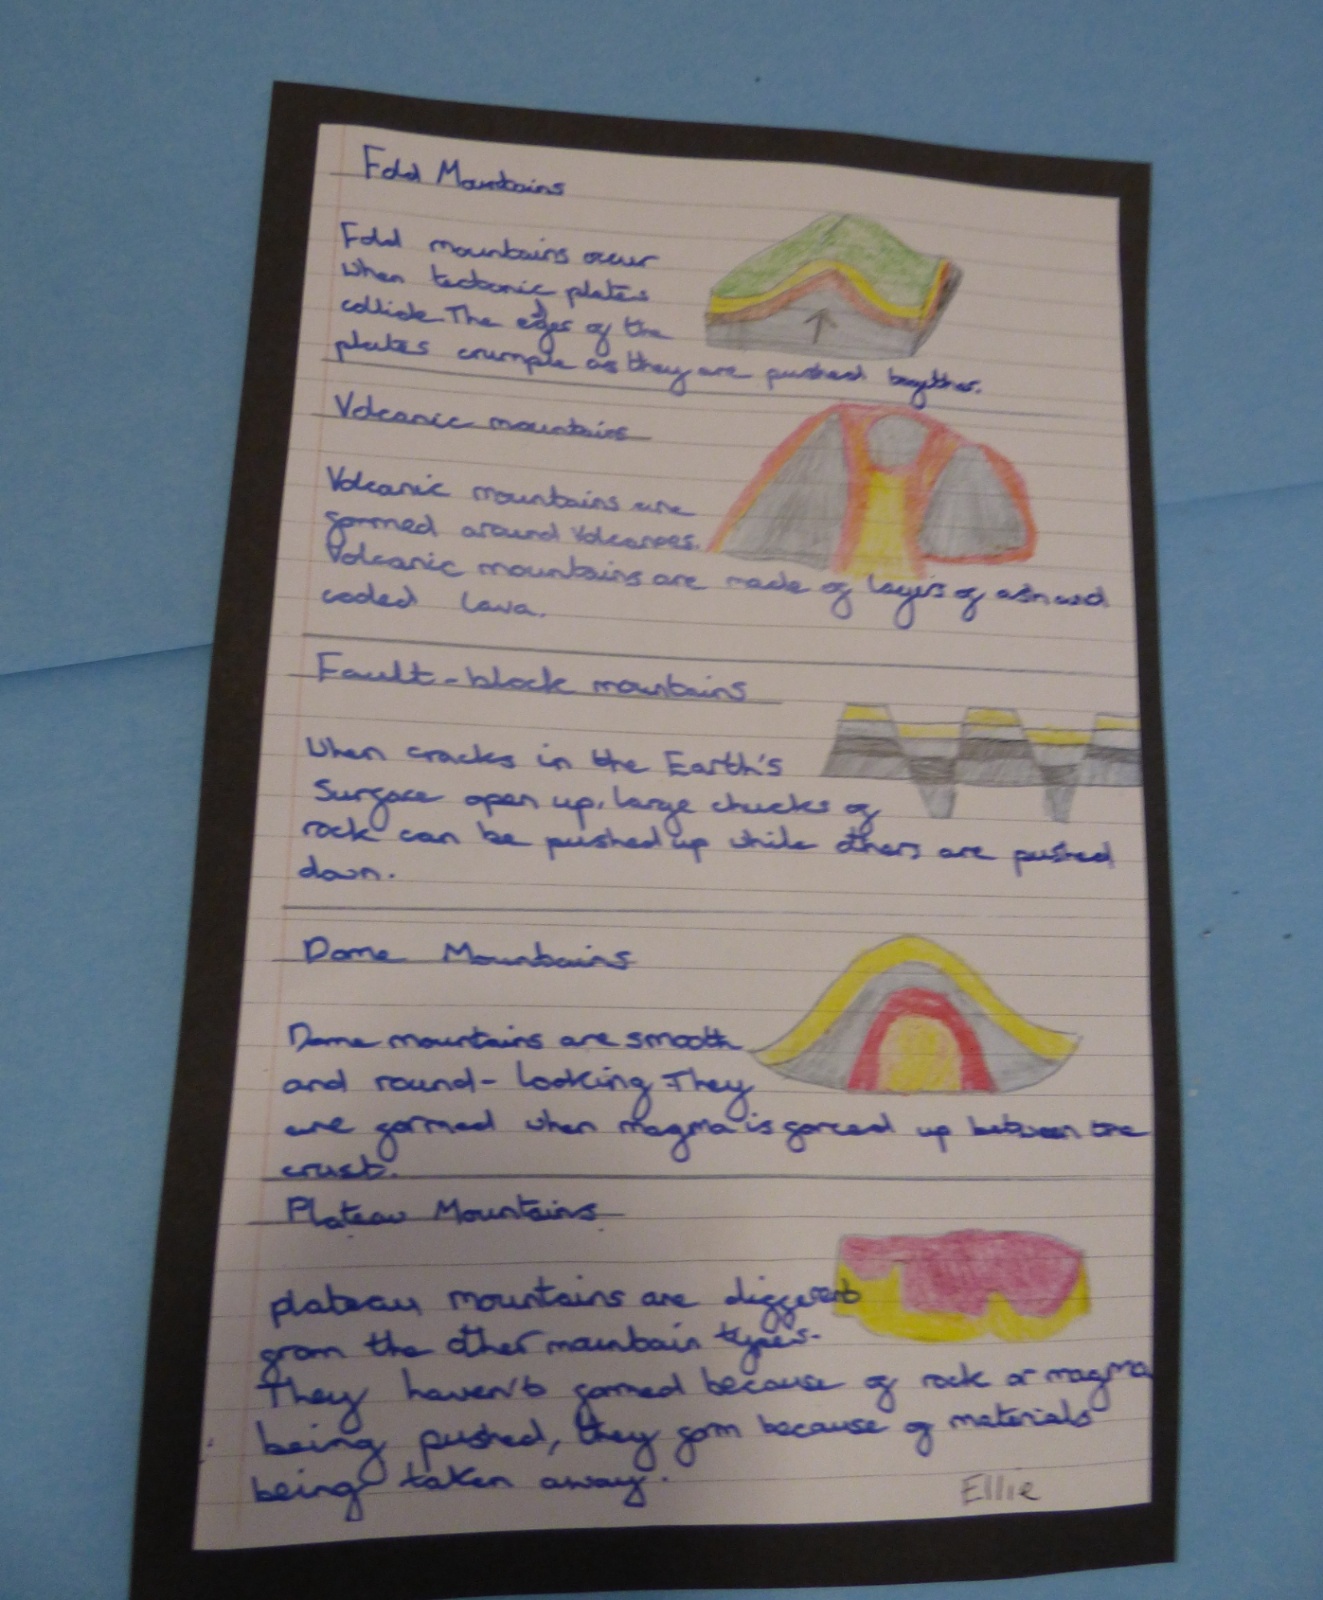 Fold Mountains
Fold mountains occur
when tectonic plates
collide. The edges of the
plates crumple as they are pushed together.
Volcanic mountains
Volcanic mountains are
formed around volcanoes.
Volcanic mountains are made of layers of ash and
cooled lava.
Fault-block mountains
When cracks in the Earth's
Surface open up, large chucks of
rock can be pushed up while others are pushed
down.
Dome Mountains
Dome mountains are smooth
and round-looking. They
are formed when magma is forced up between the
crust.
Plateau Mountains
plateau mountains are different
from the other mountain types.
They haven't formed because of rock or magma
being pushed, they form because of materials
being taken away.
Ellie